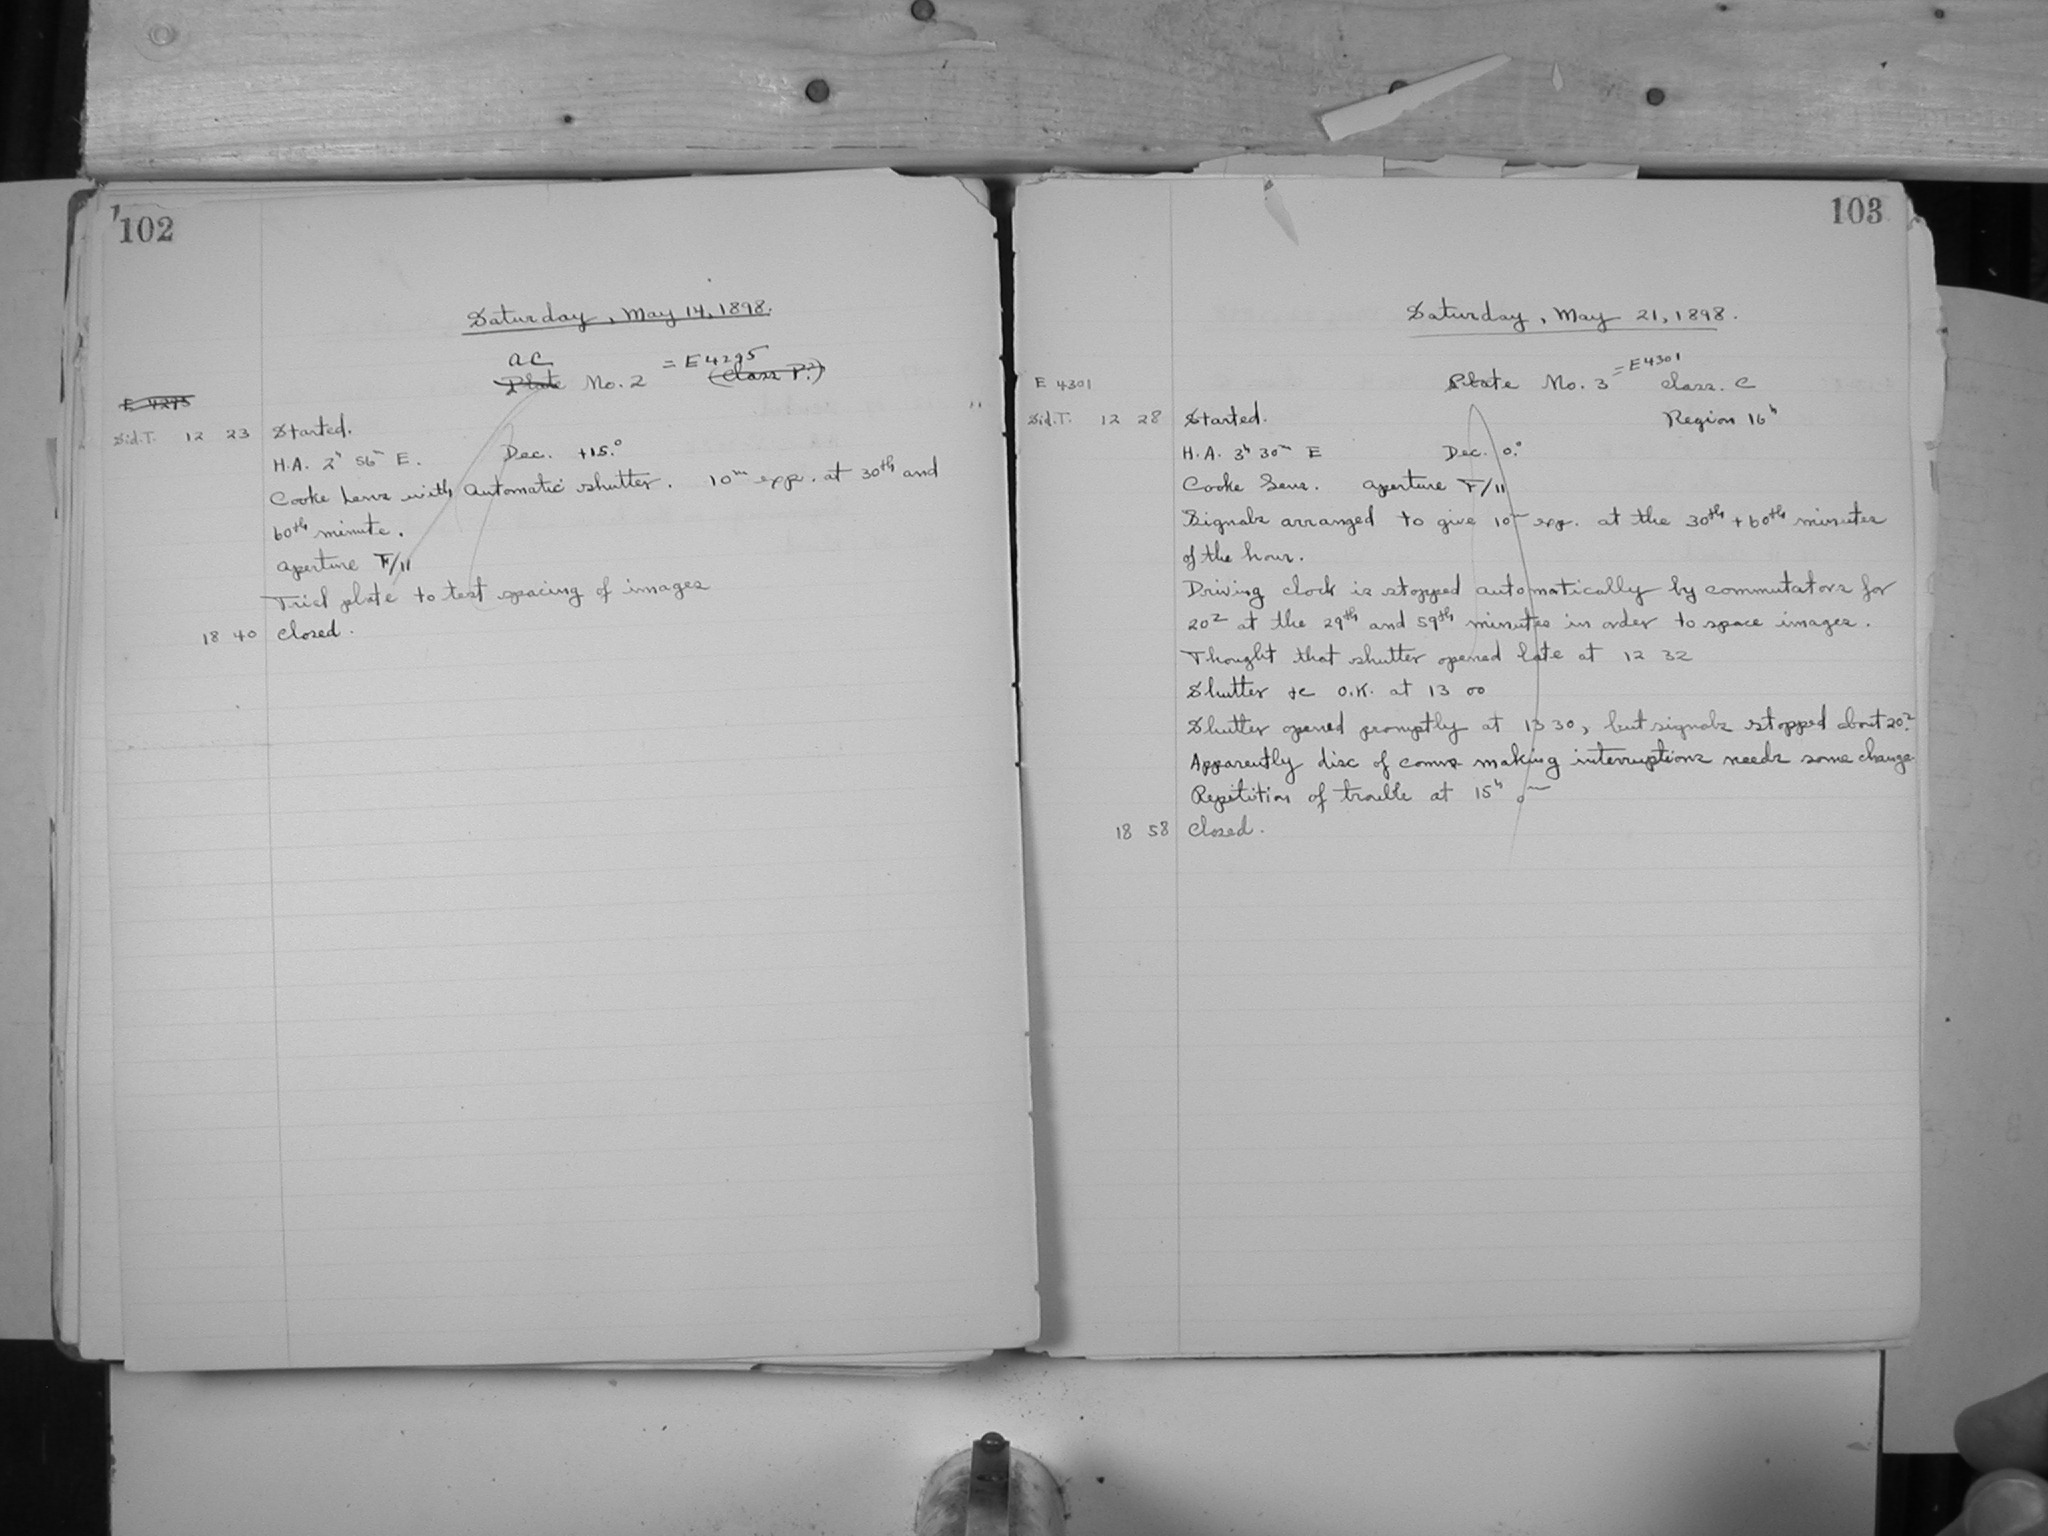 102
Saturday, May 14, 1898.
AC
Plate No. 2 = E 4295 (Class P.?)
E 4295
Sid. T. 12 23 Started.
H.A. 2h 56m E. Dec. +15.°
Cooke Lens with Automatic shutter. 10m exp. at 30th and
60th minute.
Aperture F/11
Trial plate to test spacing of images
18 40 Closed.
103
Saturday, May 21, 1898.
E 4301 Plate No. 3 = E 4301 Class. C
Sid. T. 12 28 Started. Region 16h
H.A. 3h 30m E Dec. 0.°
Cooke Lens. Aperture F/11
Signals arranged to give 10m exp. at the 30th + 60th minutes
of the hour.
Driving clock is stopped automatically by commutators for
20s at the 29th and 59th minutes in order to space images.
Thought that shutter opened late at 12 32
Shutter &c O.K. at 13 00
Shutter opened promptly at 13 30, but signals stopped about 20s.
Apparently disc of comms making interruptions needs some change.
Repetition of trouble at 15h 0m
18 58 Closed.